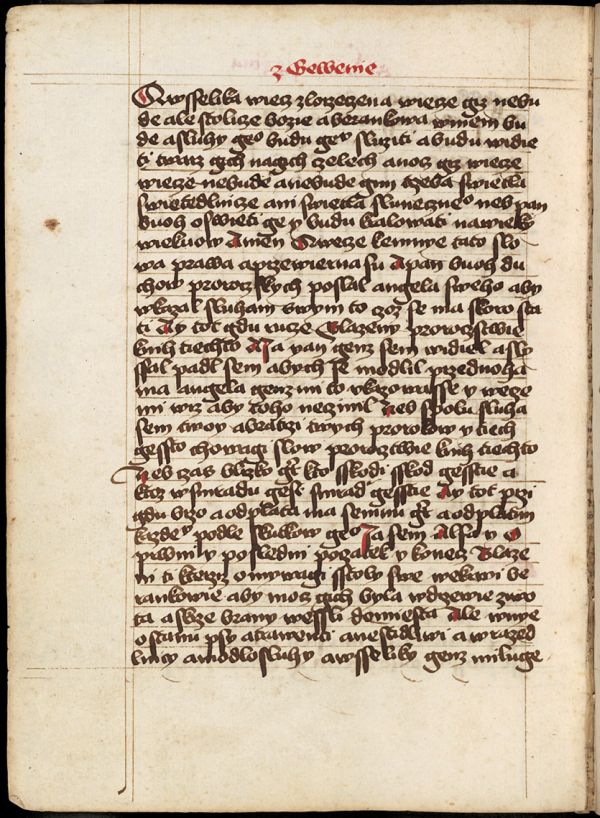 z Gewenie
A wsselika wiecz zlorzeczena wiecze giz nebu
de ale stolicze bozie a berankowa wniem bu
de a sluhy geo budu gey sluziti a budu widie
ti twarz gich nagich czelech a nocz giz wiecze
wiecze nebude a nebude gim trzeba swietla
swietedlnicze ani swietla sluneczneo neb pan
buoh oswieti ge y budu kralowati na wieky
wiekuow Amen A wecze kemnye tato slo
wa prawa a przewierna su A pan buoh du
chow proroczskych poslal angela sweho aby
vkazal sluham swym to czoz se ma skoro sta
ti Ay tot gdu rucze Blazeny proroczstwie
knih tiechto A Ja yan genz sem widiel a sly
ssal padl sem abych se modlil przed noha
ma angela genz mi to vkazowasse y wecze
mi wiz aby toho neczinil Neb spolu sluha
sem twoy a bratrzi twych prorokow y tiech
gessto chowagi slow prorocztwie knih tiechto
Neb czas blizko gt kto sskodi sskod gesstie a
ktoz w smradu gest smrad gesstie Ay tot przi
gdu brzo a odplata ma semnu gt a odplatim
kazdey podle skutkow geo Ja sem Alfa y O
prwni y posledni poczatek y konecz Blaze
ni ti kterziz omywagi sstoly swe wekrwi be
rankowie aby mocz gich byla w drzewie ziwo
ta a skze brany wessli do miesta Ale wnye
ostanu psy a trawenci a nestidliwi a wrazed
lnicy a modlosluhy a wsseliky genz miluge